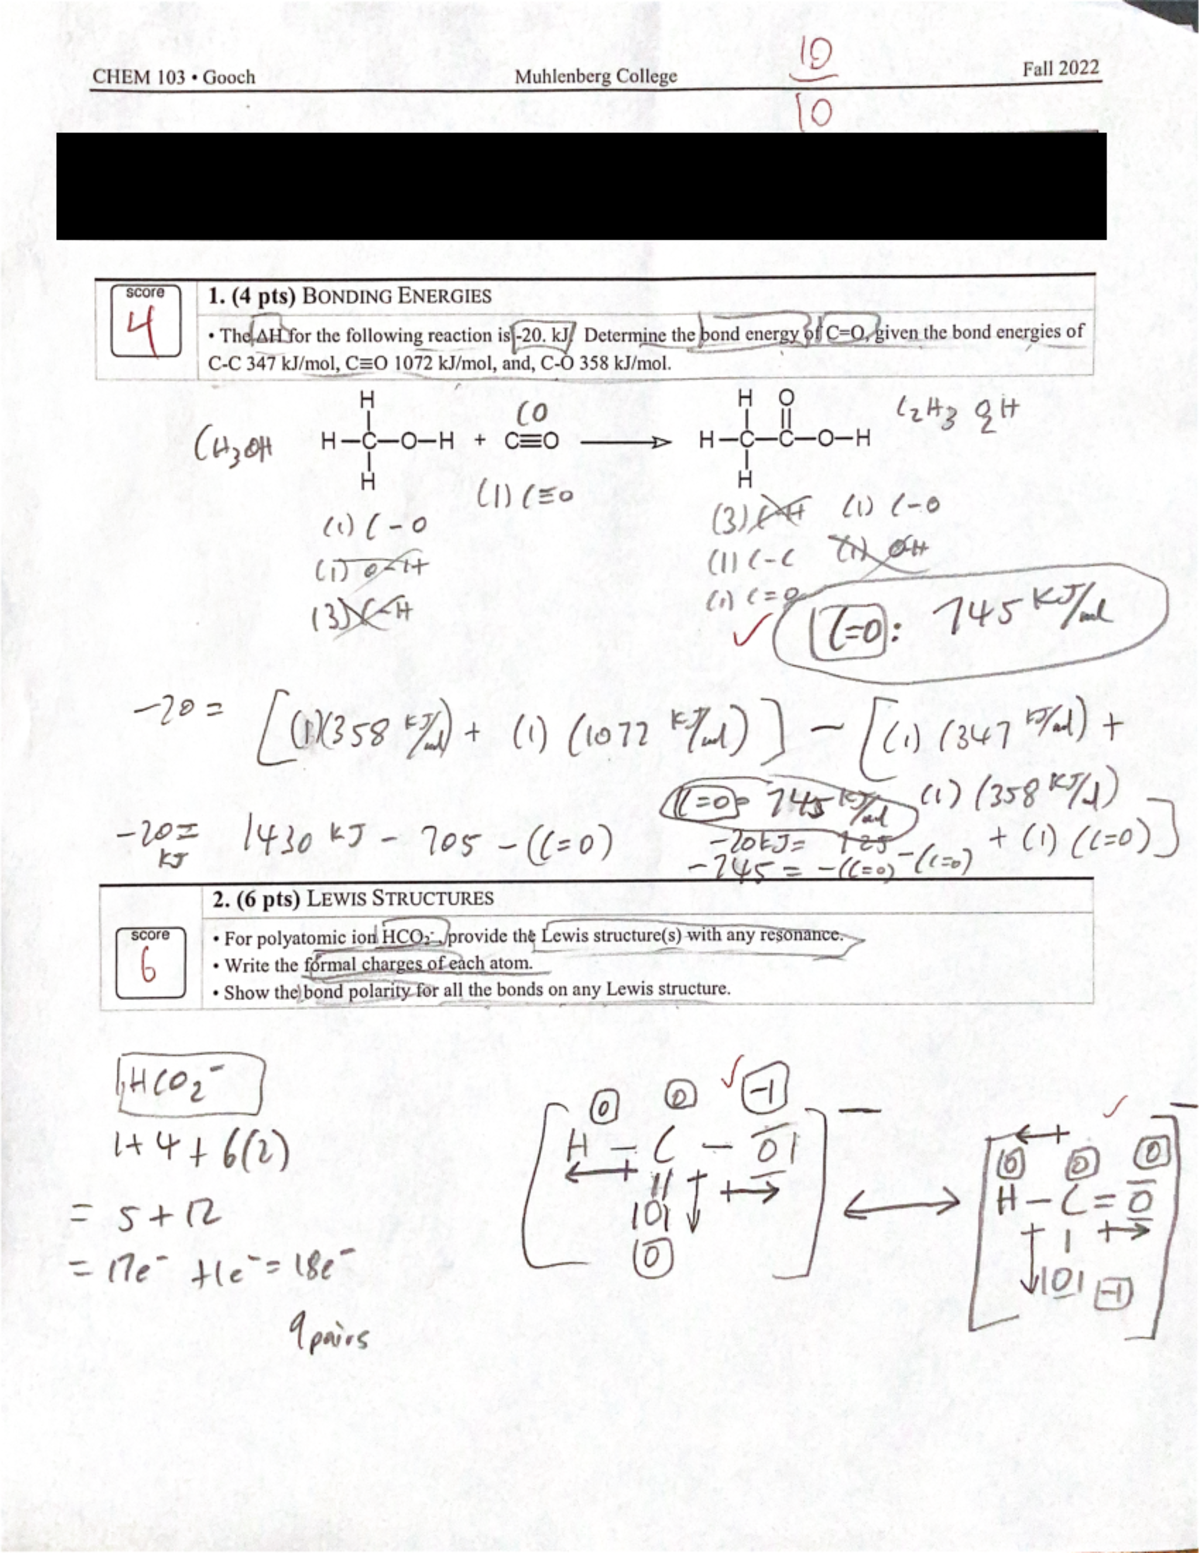 10
10
CHEM 103 • Gooch Muhlenberg College Fall 2022
score
4
1. (4 pts) BONDING ENERGIES
• The ΔH for the following reaction is -20. kJ. Determine the bond energy of C=O, given the bond energies of
C-C 347 kJ/mol, C≡O 1072 kJ/mol, and, C-O 358 kJ/mol.
H H O
CO C2H3 OH
CH3OH H-C-O-H + C≡O → H-C-C-O-H
H H
(1) C≡O
(1) C-O (3) C-H (1) C-O
(1) O-H (1) C-C (1) OH
(3) C-H (1) C=O
C=O: 745 kJ/mol
-20 = [(1)(358 kJ/mol) + (1) (1072 kJ/mol)] - [(1) (347 kJ/mol) +
(1) (358 kJ/mol)
+ (1) (C=O)]
C=O = 745 kJ/mol
-20 = 1430 kJ - 705 - (C=O)
kJ
-20kJ = 725 - (C=O)
-745 = -(C=O)
score
6
2. (6 pts) LEWIS STRUCTURES
• For polyatomic ion HCO2-, provide the Lewis structure(s) with any resonance.
• Write the formal charges of each atom.
• Show the bond polarity for all the bonds on any Lewis structure.
HCO2-
1+4+6(2)
= 5+12
= 17e- +1e- = 18e-
9 pairs
0 0 -1
H - C - O
O
0
0 0 0
H - C = O
O -1